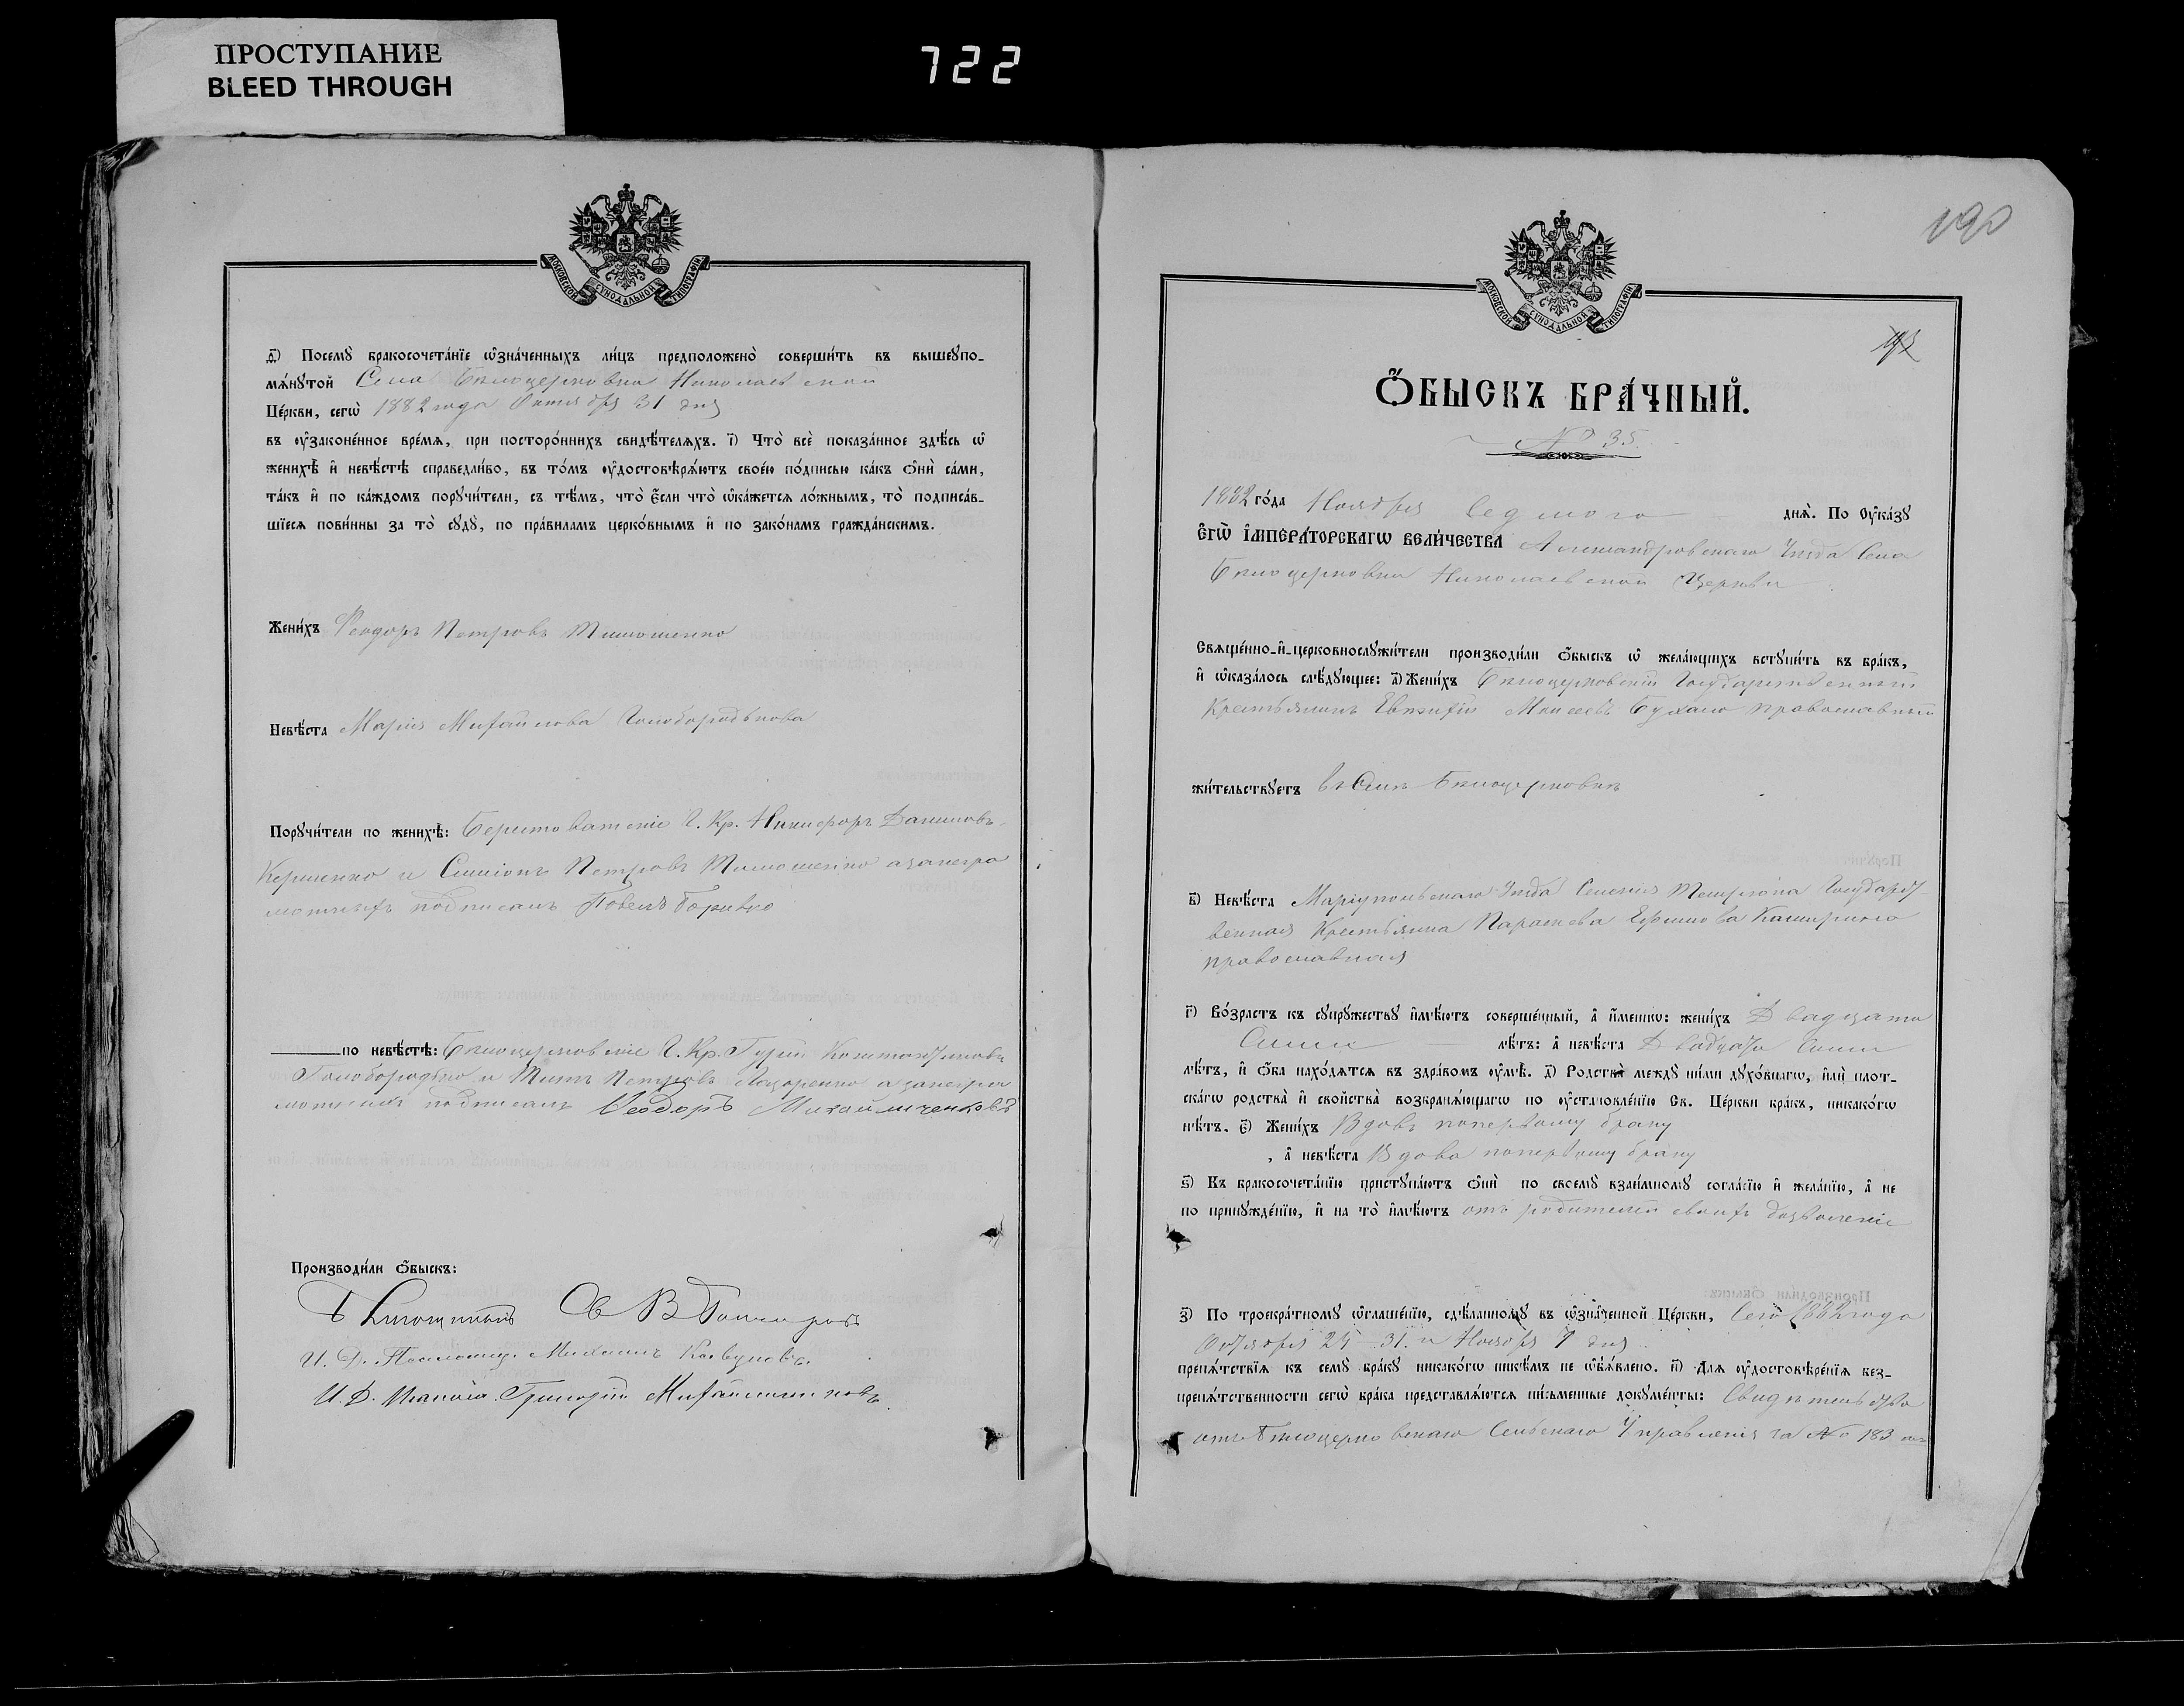 ПРОСТУПАНИЕ
BLEED THROUGH
722
МОСКОВСКОЙ СѴНОДАЛЬНОЙ ТИПОГРАФІИ
Посемꙋ̀ бракосочета́нїе ѡ҆зна́ченныхъ ли́цъ предположено̀ соверши́ть въ вышеꙋпо-
мѧ́нꙋтой Села Бѣлоцерковки Николаевской
Це́ркви, сегѡ̀ 1882 года Октября 31 дня
въ ᲂу҆зако́ненное вре́мѧ, при посторо́ннихъ свидѣ́телѧхъ. і҃) Что̀ всѐ пока́занное здѣ́сь ѡ҆
женихѣ̀ и҆ невѣ́стѣ справедли́во, въ то́мъ ᲂу҆достовѣрѧ́ютъ свое́ю по́дписью ка́къ ѻ҆нѝ са́ми,
та́къ и҆ по ка́ждомъ порꙋчи́тели, съ тѣ́мъ, что̀ є҆́сли что̀ ѡ҆ка́жетсѧ ло́жнымъ, то̀ подписа́в-
шїесѧ пови́нны за то̀ сꙋдꙋ̀, по пра́виламъ церко́внымъ и҆ по зако́намъ гражда́нскимъ.
Жени́хъ Феодоръ Петровъ Тимошенко
Невѣ́ста Марія Михайлова Голобородькова
Порꙋчи́тели по женихѣ̀: Берестоватскіе Г. Кр. Никифоръ Даниловъ
и Симеонъ Петровъ Тимошенко а за негра
мотныхъ подписалъ
по невѣ́стѣ: Бѣлоцерковскіе Г. Кр. Гурій Константиновъ
Голобородько и Титъ Петровъ Назаренко а за негра
мотныхъ подписалъ Ѳеодоръ Михайличенковъ
Производи́ли ѻ҆́быскъ:
Св В Гончаровъ
И. Д. Псаломщ. Михаилъ
И. Д. Григорій
190
ѺБЫСКЪ БРА́ЧНЫЙ.
№ 35.
1882 го́да Ноября Седмого днѧ̀. По ᲂу҆ка́зꙋ
Є҆гѡ̀ І҆мпера́торскагѡ вели́чества Александровскаго Уѣзда Села
Бѣлоцерковки Николаевской Церкви
Свѧще́нно-и҆-церковнослꙋжи́тели производи́ли ѻ҆́быскъ ѡ҆ жела́ющихъ встꙋпи́ть въ бра́къ,
и҆ ѡ҆каза́лось слѣ́дꙋющее: а҃) Жени́хъ Бѣлоцерковскій Государственный
Крестьянинъ Евтихій Моисеевъ Бухало православный
жи́тельствꙋетъ въ Селѣ Бѣлоцерковкѣ
в҃) Невѣ́ста Маріупольскаго Уѣзда Селенія Темрюка Государст
венная Крестьянка Параскева Ефимова
православная
г҃) Во́зрастъ къ сꙋпрꙋ́жествꙋ и҆мѣ́ютъ соверше́нный, а҆ и҆́менно: жени́хъ Двадцати
Семи лѣ́тъ: а҆ невѣ́ста Двадцати Семи
лѣ́тъ, и҆ ѻ҆́ба нахо́дѧтсѧ въ здра́вомъ ᲂу҆мѣ̀. д҃) Родства̀ междꙋ ни́ми дꙋхо́внагѡ, и҆лѝ плот-
ска́гѡ родства̀ и҆ свойства̀ возбранѧ́ющагѡ по ᲂу҆становле́нїю Св. Це́ркви бра́къ, никако́гѡ
нѣ́тъ. є҃) Жени́хъ Вдовъ по первому браку
, а҆ невѣ́ста Вдова по первому браку
ѕ҃) Къ бракосочета́нїю пристꙋпа́ютъ ѻ҆нѝ по своемꙋ̀ взаи́мномꙋ согла́сїю и҆ жела́нїю, а҆ не
по принꙋжде́нїю, и҆ на то̀ и҆мѣ́ютъ отъ родителей своихъ дозволеніе
з҃) По троекра́тномꙋ ѡ҆глаше́нїю, сдѣ́ланномꙋ въ ѡ҆зна́ченной Це́ркви, Сего 1882 года
Октября 24 31. и Ноября 7 дня
препѧ́тствїѧ къ семꙋ̀ бра́кꙋ никако́гѡ никѣ́мъ не ѡ҆б̾ѧ́влено. и҃) Длѧ ᲂу҆достовѣре́нїѧ без-
препѧ́тственности сегѡ̀ бра́ка представлѧ́ютсѧ пи́сьменные докꙋме́нты: Свидѣтельство
отъ Бѣлоцерковскаго Сельскаго Управленія за № 183